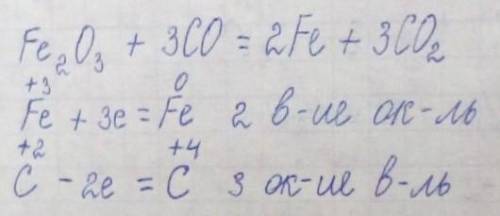 Fe₂O₃ + 3CO = 2Fe + 3CO₂
+3 0
Fe + 3e = Fe 2 в-ие ок-ль
+2 +4
C - 2e = C 3 ок-ие в-ль